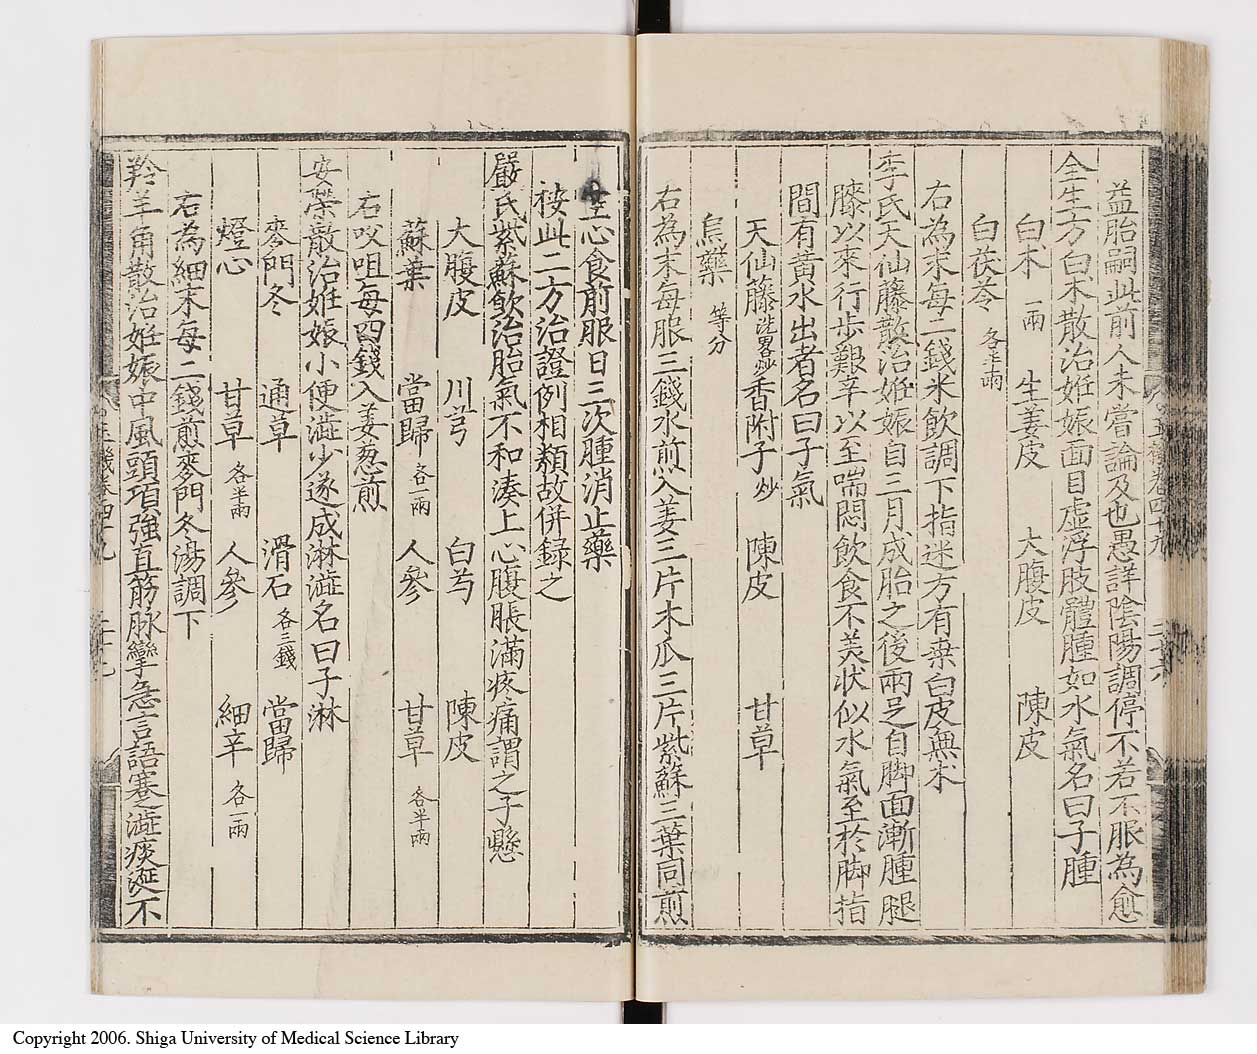 益胎嗣此前人未嘗論及也愚詳陰陽調停不若不服為愈
全生方白朮散治姙娠面目虛浮肢體腫如水氣名曰子腫
白朮一兩 生姜皮 大腹皮 陳皮
白茯苓各半兩
右為末每二錢米飲調下指迷方有桒白皮無朮
李氏天仙藤散治姙娠自三月成胎之後兩足自脚面漸腫腿
膝以來行步艱辛以至喘悶飲食不美狀似水氣至於脚指
間有黃水出者名曰子氣
天仙藤洗畧炒 香附子炒 陳皮 甘草
烏藥等分
右為末每服三錢水煎入姜三片木瓜三片紫蘇三葉同煎
空心食前服日三次腫消止藥
按此二方治證例相類故併録之
嚴氏紫蘇飲治胎氣不和湊上心腹脹滿疼痛謂之子懸
大腹皮 川芎 白芍 陳皮
蘇葉 當歸各一兩 人參 甘草各半兩
右㕮咀每四錢入姜葱煎
安榮散治姙娠小便澁少遂成淋澁名曰子淋
麥門冬 通草 滑石各三錢 當歸
燈心 甘草各半兩 人參 細辛各一兩
右為細末每二錢煎麥門冬湯調下
羚羊角散治姙娠中風頭項強直筋脉攣急言語蹇澁痰涎不
Copyright 2006. Shiga University of Medical Science Library